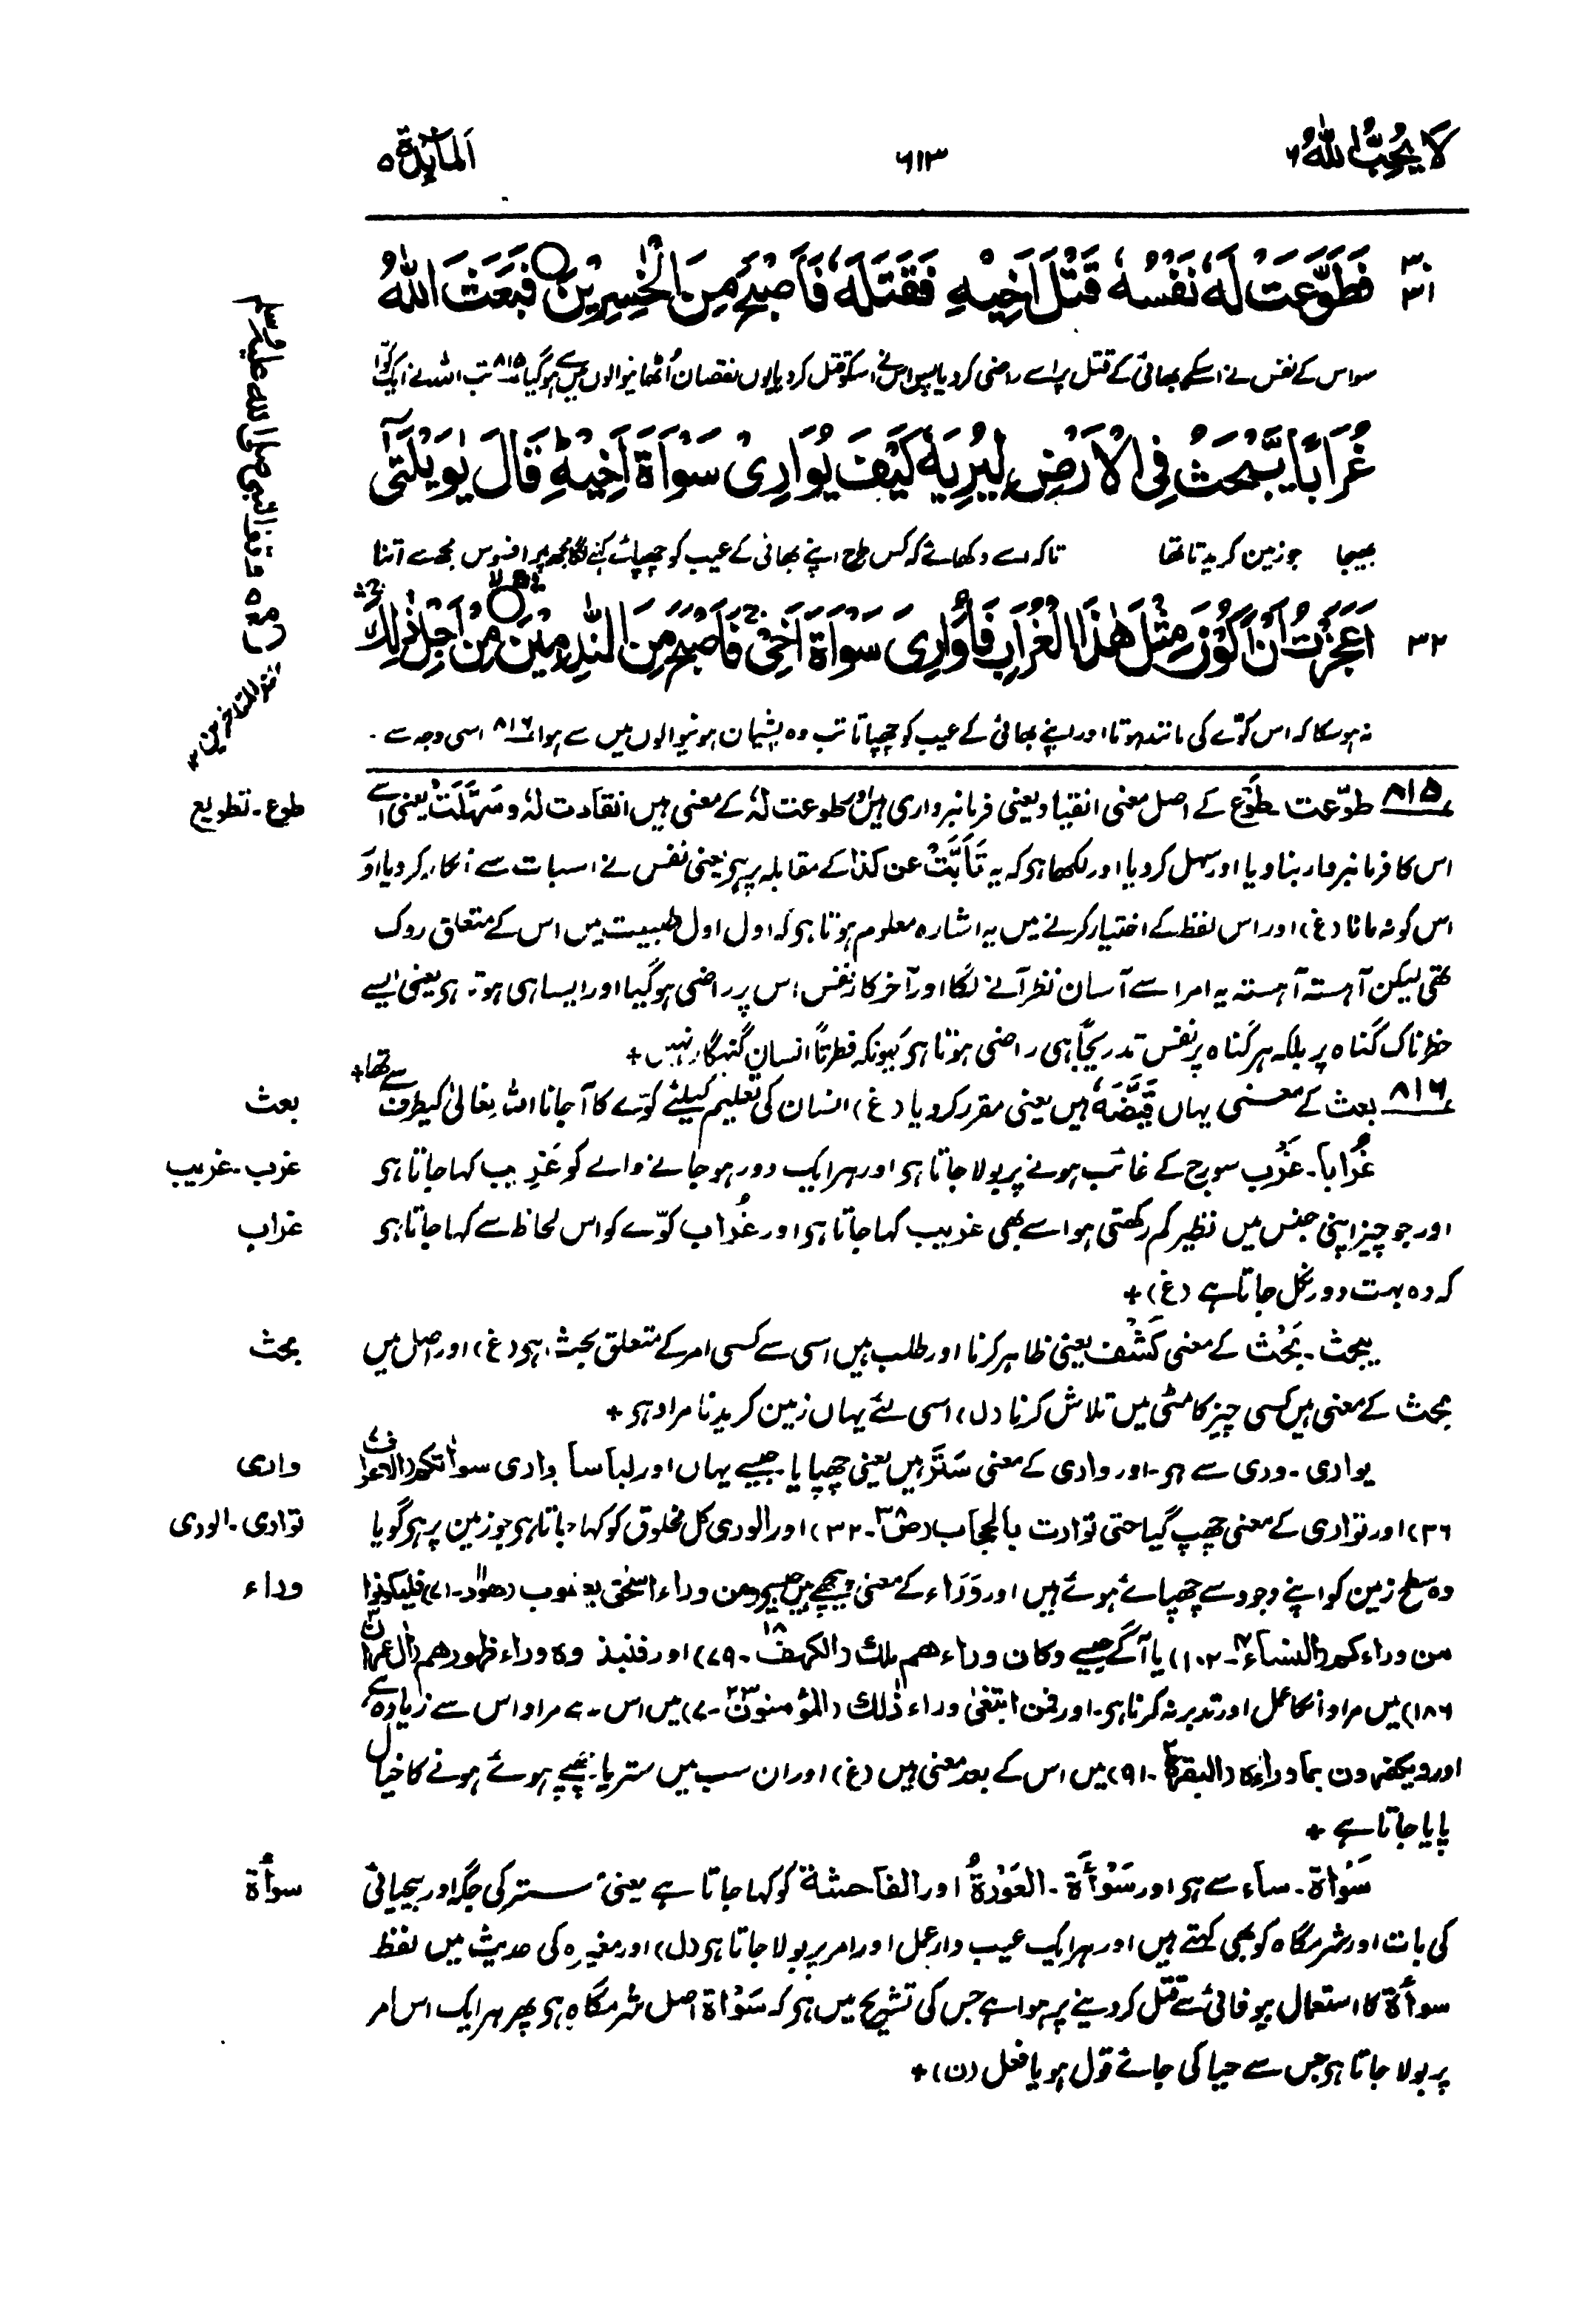 لَا يُحِبُّ اللّٰهُ ۶
۶۱۳
اَلْمَآئِدَة ۵
۳۰
۳۱
فَطَوَّعَتْ لَهٗ نَفْسُهٗ قَتْلَ اَخِيْهِ فَقَتَلَهٗ فَاَصْبَحَ مِنَ الْخٰسِرِيْنَ ○ فَبَعَثَ اللّٰهُ
سو اس کے نفس نے اسکے بھائی کے قتل پر اسے راضی کر دیا پس اس نے اسکو قتل کر دیا یوں نقصان اُٹھانیوالوں میں سے ہو گیا ۸۱۵ تب اللہ نے ایک کوّا
غُرَابًا يَّبْحَثُ فِى الْاَرْضِ لِيُرِيَهٗ كَيْفَ يُوَارِىْ سَوْاَةَ اَخِيْهِ ؕ قَالَ يٰوَيْلَتٰٓى
بھیجا جو زمین کریدتا تھا تاکہ اسے دکھائے کہ کس طرح اپنے بھائی کے عیب کو چھپائے کہنے لگا مجھ پر افسوس مجھ سے اتنا
۳۲
اَعَجَزْتُ اَنْ اَكُوْنَ مِثْلَ هٰذَا الْغُرَابِ فَاُوَارِىَ سَوْاَةَ اَخِىْ ۚ فَاَصْبَحَ مِنَ النّٰدِمِيْنَ ○ مِنْ اَجْلِ ذٰلِكَ
نہ ہو سکا کہ اس کوّے کی مانند ہوتا اور اپنے بھائی کے عیب کو چھپاتا تب وہ پشیمان ہونیوالوں میں سے ہوا ۸۱۶ اسی وجہ سے
وقف النبی صلی اللہ علیہ وسلم
عند المتاخرین ۱۲
۸۱۵ طوّعت۔ طَوْع کے اصل معنی انقیاد یعنی فرمانبرداری ہیں اور طوعت لہٗ کے معنی ہیں انقادت لہٗ و سَهَّلَتْ یعنی اسے
طوع۔ تطویع
اس کا فرمانبردار بنا دیا اور سہل کر دیا اور لکھا ہو کہ یہ تَأَبَّتْ عن کذا کے مقابلہ پر ہو یعنی نفس نے اس بات سے انکار کر دیا اور
اس کو نہ مانا (غ) اور اس لفظ کے اختیار کرنے میں یہ اشارہ معلوم ہوتا ہو کہ اول اول طبیعت میں اس کے متعلق روک
تھی لیکن آہستہ آہستہ یہ امر اسے آسان نظر آنے لگا اور آخر کار نفس اس پر راضی ہو گیا اور ایسا ہی ہوتا ہو یعنی ایسے
خطرناک گناہ پر بلکہ ہر گناہ پر نفس تدریجاً ہی راضی ہوتا ہو کیونکہ فطرتاً انسان گنہگار نہیں +
۸۱۶ بعث کے معنی یہاں قَيَّضَهٗ ہیں یعنی مقرر کر دیا (غ) انسان کی تعلیم کیلئے کوّے کا آجانا اللہ تعالیٰ کیطرف سے تھا +
بعث
غُرَاباً۔ غَرْب سورج کے غائب ہونے پر بولا جاتا ہو اور ہر ایک دور ہو جانے والے کو غَرِیب کہا جاتا ہو
غرب۔ غریب
اور جو چیز اپنی جنس میں نظیر کم رکھتی ہو اسے بھی غریب کہا جاتا ہو اور غُراب کوّے کو اس لحاظ سے کہا جاتا ہو
غراب
کہ وہ بہت دور نکل جاتا ہے (غ) +
یبحث۔ بَحْث کے معنی کَشْف یعنی ظاہر کرنا اور طلب ہیں اسی سے کسی امر کے متعلق بحث ہو (غ) اور اصل میں
بحث
بحث کے معنی ہیں کسی چیز کا مٹی میں تلاش کرنا (ل) اسی لئے یہاں زمین کریدنا مراد ہو +
یواری۔ وری سے ہو۔ اور واری کے معنی سَتَرَ ہیں یعنی چھپایا۔ جیسے یہاں اور لباسا یواری سواٰتکم (الاعراف ۷۔
واری
۲۶) اور تواری کے معنی چھپ گیا حتی توارت بالحجاب (صٓ ۳۸۔ ۳۲) اور الوری کل مخلوق کو کہا جاتا ہو جو زمین پر ہو گویا
تواری۔ الوری
وہ سطح زمین کو اپنے وجود سے چھپائے ہوئے ہیں اور وَرَاء کے معنی پیچھے ہیں جیسے ومن وراء اسحٰق یعقوب (ھود۔ ۷۱) فلیکونوا
وراء
من وراءکم (النساء ۴۔ ۱۰۲) یا آگے جیسے وکان وراءھم ملك (الکہف ۱۸۔ ۷۹) اور فنبذ وہ وراء ظہورھم (اٰل عمران ۳۔
۱۸۶) میں مراد انکا عمل اور تدبر نہ کرنا ہو۔ اور فمن ابتغیٰ وراء ذٰلك (المؤمنون ۲۳۔ ۷) میں اس سے مراد اس سے زیادہ ہے
اور ویکفرون بما وراءہ (البقرۃ ۲۔ ۹۱) میں اس کے بعد معنی ہیں (غ) اور ان سب میں ستر یا چھپے ہوئے ہونے کا خیال
پایا جاتا ہے +
سَوْاٰة۔ ساء سے ہو اور سَوْأَة۔ العَوْرَةُ اور الفاحشة کو کہا جاتا ہے یعنی ستر کی جگہ اور بیحیائی
سوأة
کی بات اور شرمگاہ کو بھی کہتے ہیں اور ہر ایک عیب دار عمل اور امر پر بولا جاتا ہو (ل) اور مغیرہ کی حدیث میں لفظ
سوأة کا استعمال بیوفائی سے قتل کر دینے پر ہوا ہے جس کی تشریح میں ہو کہ سَوْاٰة اصل شرمگاہ ہو پھر ہر ایک اس امر
پر بولا جاتا ہو جس سے حیا کی جائے قول ہو یا فعل (ن) +